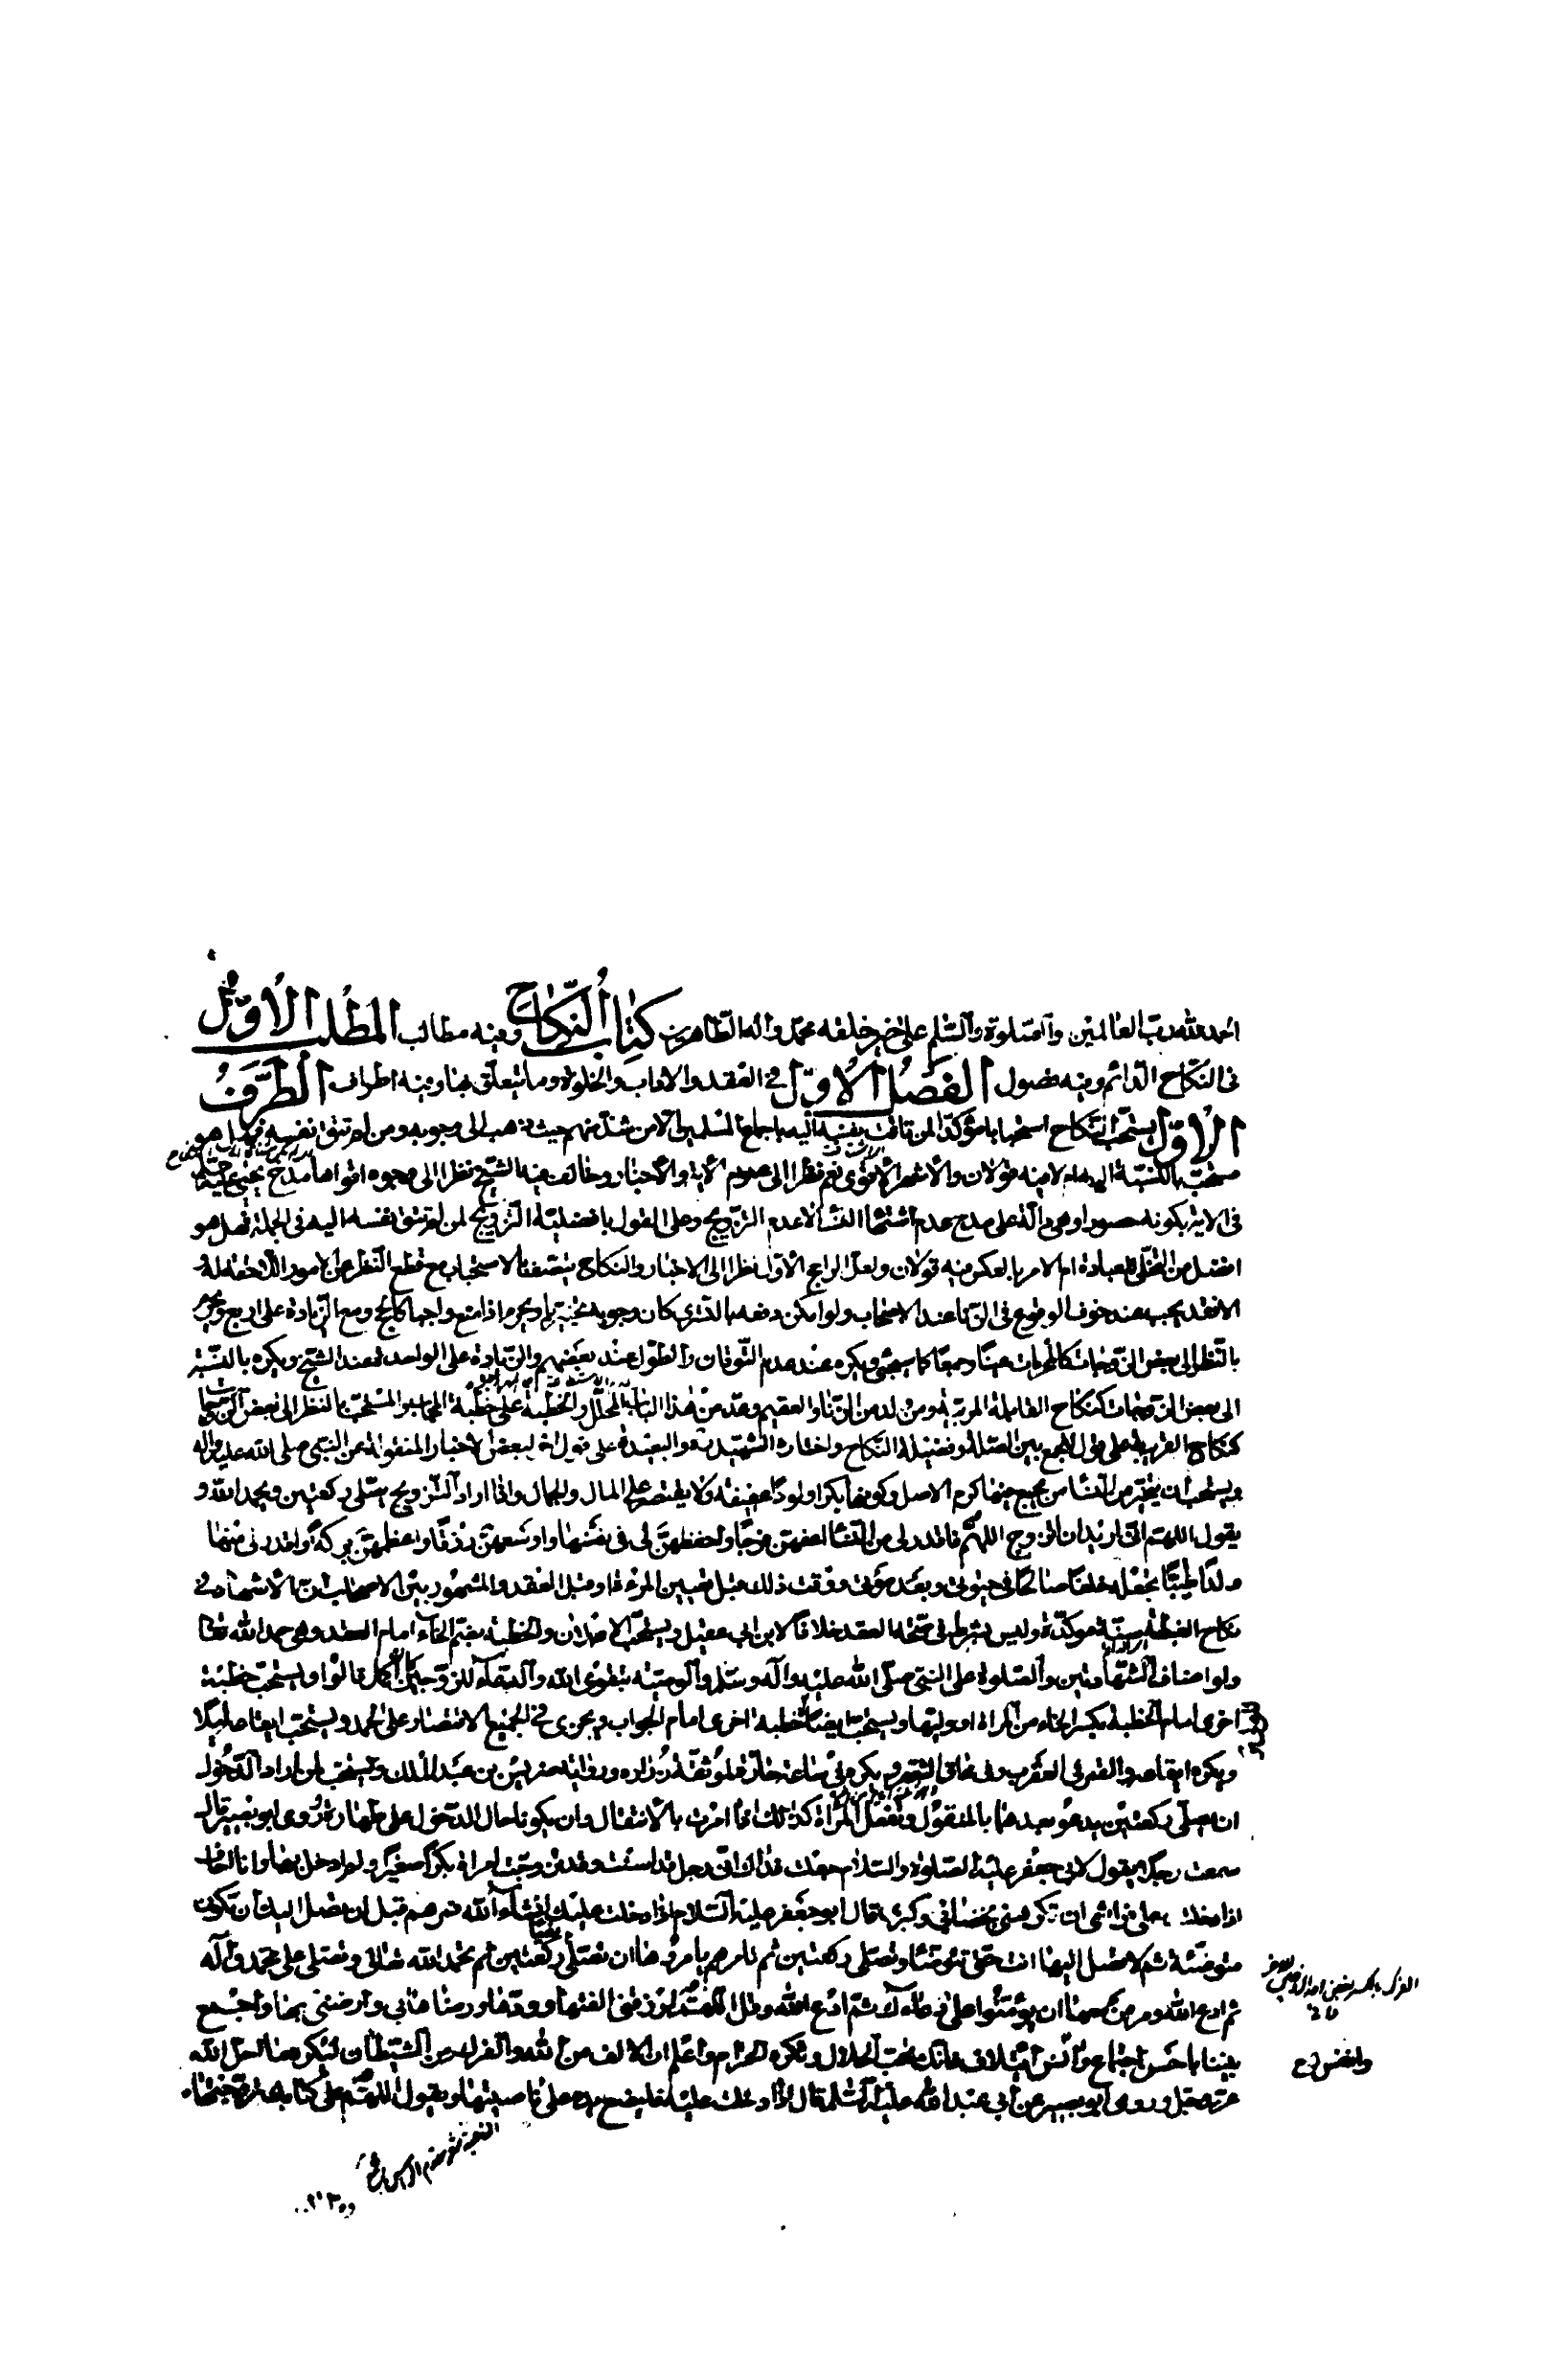 الحمد لله رب العالمين والصلوة والسلم على خير خلقه محمد واله الطاهرين كتاب النكاح وفيه مطالب المطلب الاول
في النكاح الدائم وفيه فصول الفصل الاول في العقد والاداب والخلوة وما يتعلق بها وفيه اطراف الطرف
الاول يستحب النكاح استحبابا مؤكدا لمن تاقت نفسه اليه باجماع المسلمين الا من شذ منهم حيث ذهب الى وجوبه ومن لم تتق نفسه فهل هو
مستحب بالنسبة اليه ام لا فيه قولان والاشهر الاقوى نعم نظرا الى عموم الاية والاخبار وخالف فيه الشيخ نظرا الى وجوه اقواها مدح يحيى عليه
في الاية بكونه حصورا وهي دالة على مدح عدم اشتهاء النساء لا عدم التزويج وعلى القول بافضلية التزويج لمن لم تتق نفسه اليه في الجملة فهل هو
افضل من التخلي للعبادة ام الامر بالعكس فيه قولان ولعل الراجح الاول نظرا الى الاخبار والنكاح يتصف بالاستحباب مع قطع النظر عن الامور اللاحقة له
الا فقد يجب عند خوف الوقوع في الزنا عند الاصحاب ولو امكن دفعه بالتسري كان وجوبه تخييريا ويحرم اذا منع واجبا كالحج ومع الزيادة على اربع
بالنظر الى بعض الزوجات كالمحرمات عينا وجمعا كما سيجئ ويكره عند عدم التوقان والطول عند بعضهم والزيادة على الواحدة عند الشيخ ويكره بالنسبة
الى بعض الزوجات كنكاح القابلة المربية ومن ولد من الزنا والعقيم وعد من هذا الباب المحلل والخطبة على خطبة المجاب والمستحب بالنظر الى بعض
كنكاح القريبة على قول للجمع بين الصلة وفضيلة النكاح واختاره الشهيد والبعيدة على قول اخر لبعض الاخبار المنقولة عن النبي صلى الله عليه واله
ويستحب ان يتخير من النساء من يجمع فيها كرم الاصل وكونها بكرا ولودا عفيفة ولا يقتصر على المال والجمال واذا اراد التزويج صلى ركعتين ويحمد الله و
يقول اللهم اني اريد ان اتزوج اللهم فاقدر لي من النساء اعفهن فرجا واحفظهن لي في نفسها واوسعهن رزقا واعظمهن بركة واقدر لي منها
ولدا طيبا تجعله خلفا صالحا في حيوتي وبعد موتي ووقت ذلك قبل تعيين المراة وقبل العقد والمشهور بين الاصحاب ان الاشهاد في
نكاح الغبطة سنة مؤكدة وليس بشرط في صحة العقد خلافا لابن ابي عقيل ويستحب الاعلان والخطبة بضم الخاء امام العقد وهي حمد الله تعالى
ولو اضاف الشهادتين والصلوة على النبي صلى الله عليه واله وسلم والوصية بتقوى الله والدعاء للزوجين كان اكمل قالوا ويستحب خطبة
اخرى امام الخطبة بكسر الخاء من المراة او وليها ويستحب ايضا خطبة اخرى امام الجواب ويجزى في الجميع الاقتصار على الحمد ويستحب ايقاعه ليلا
ويكره ايقاعه والقمر في العقرب وفي محاق الشهر ويكره في ساعة حارة لموثقة زرارة ورواية ضريس بن عبد الملك ويستحب لمن اراد الدخول
ان يصلي ركعتين يدعو بعدهما بالمنقول وتفعل المراة كذلك اذا امرت بالانتقال وان يكونا حال الدخول على طهارة روى ابو بصير قال
سمعت رجلا يقول لابي جعفر عليه الصلوة والسلام جعلت فداك اني رجل قد اسننت وقد تزوجت امراة بكرا صغيرة ولم ادخل بها وانا اخاف
اذا دخلت علي فراتني ان تكرهني لخضابي وكبري قال ابو جعفر عليه السلام اذا دخلت عليك ان شاء الله فمرهم قبل ان تصل اليك ان تكون
متوضئة ثم لا تصل اليها انت حتى تتوضأ وتصلي ركعتين ثم تامرهم يامروها ان تصلي ركعتين ثم تحمد الله تعالى وتصلي على محمد وآله
ثم ادع الله ومر من معها ان يؤمنوا على دعائك ثم ادع الله وقل اللهم ارزقني الفتها وودها ورضاها بي وارضني بها واجمع
بيننا باحسن اجتماع وانس ايتلاف فانك تحب الحلال وتكره الحرام واعلم ان الالف من الله والفرك من الشيطان ليكره ما احل الله
عز وجل وروى ابو بصير عن ابي عبد الله عليه السلم قال اذا دخلت عليه فليضع يده على ناصيتها ويقول اللهم على كتابك تزوجتها